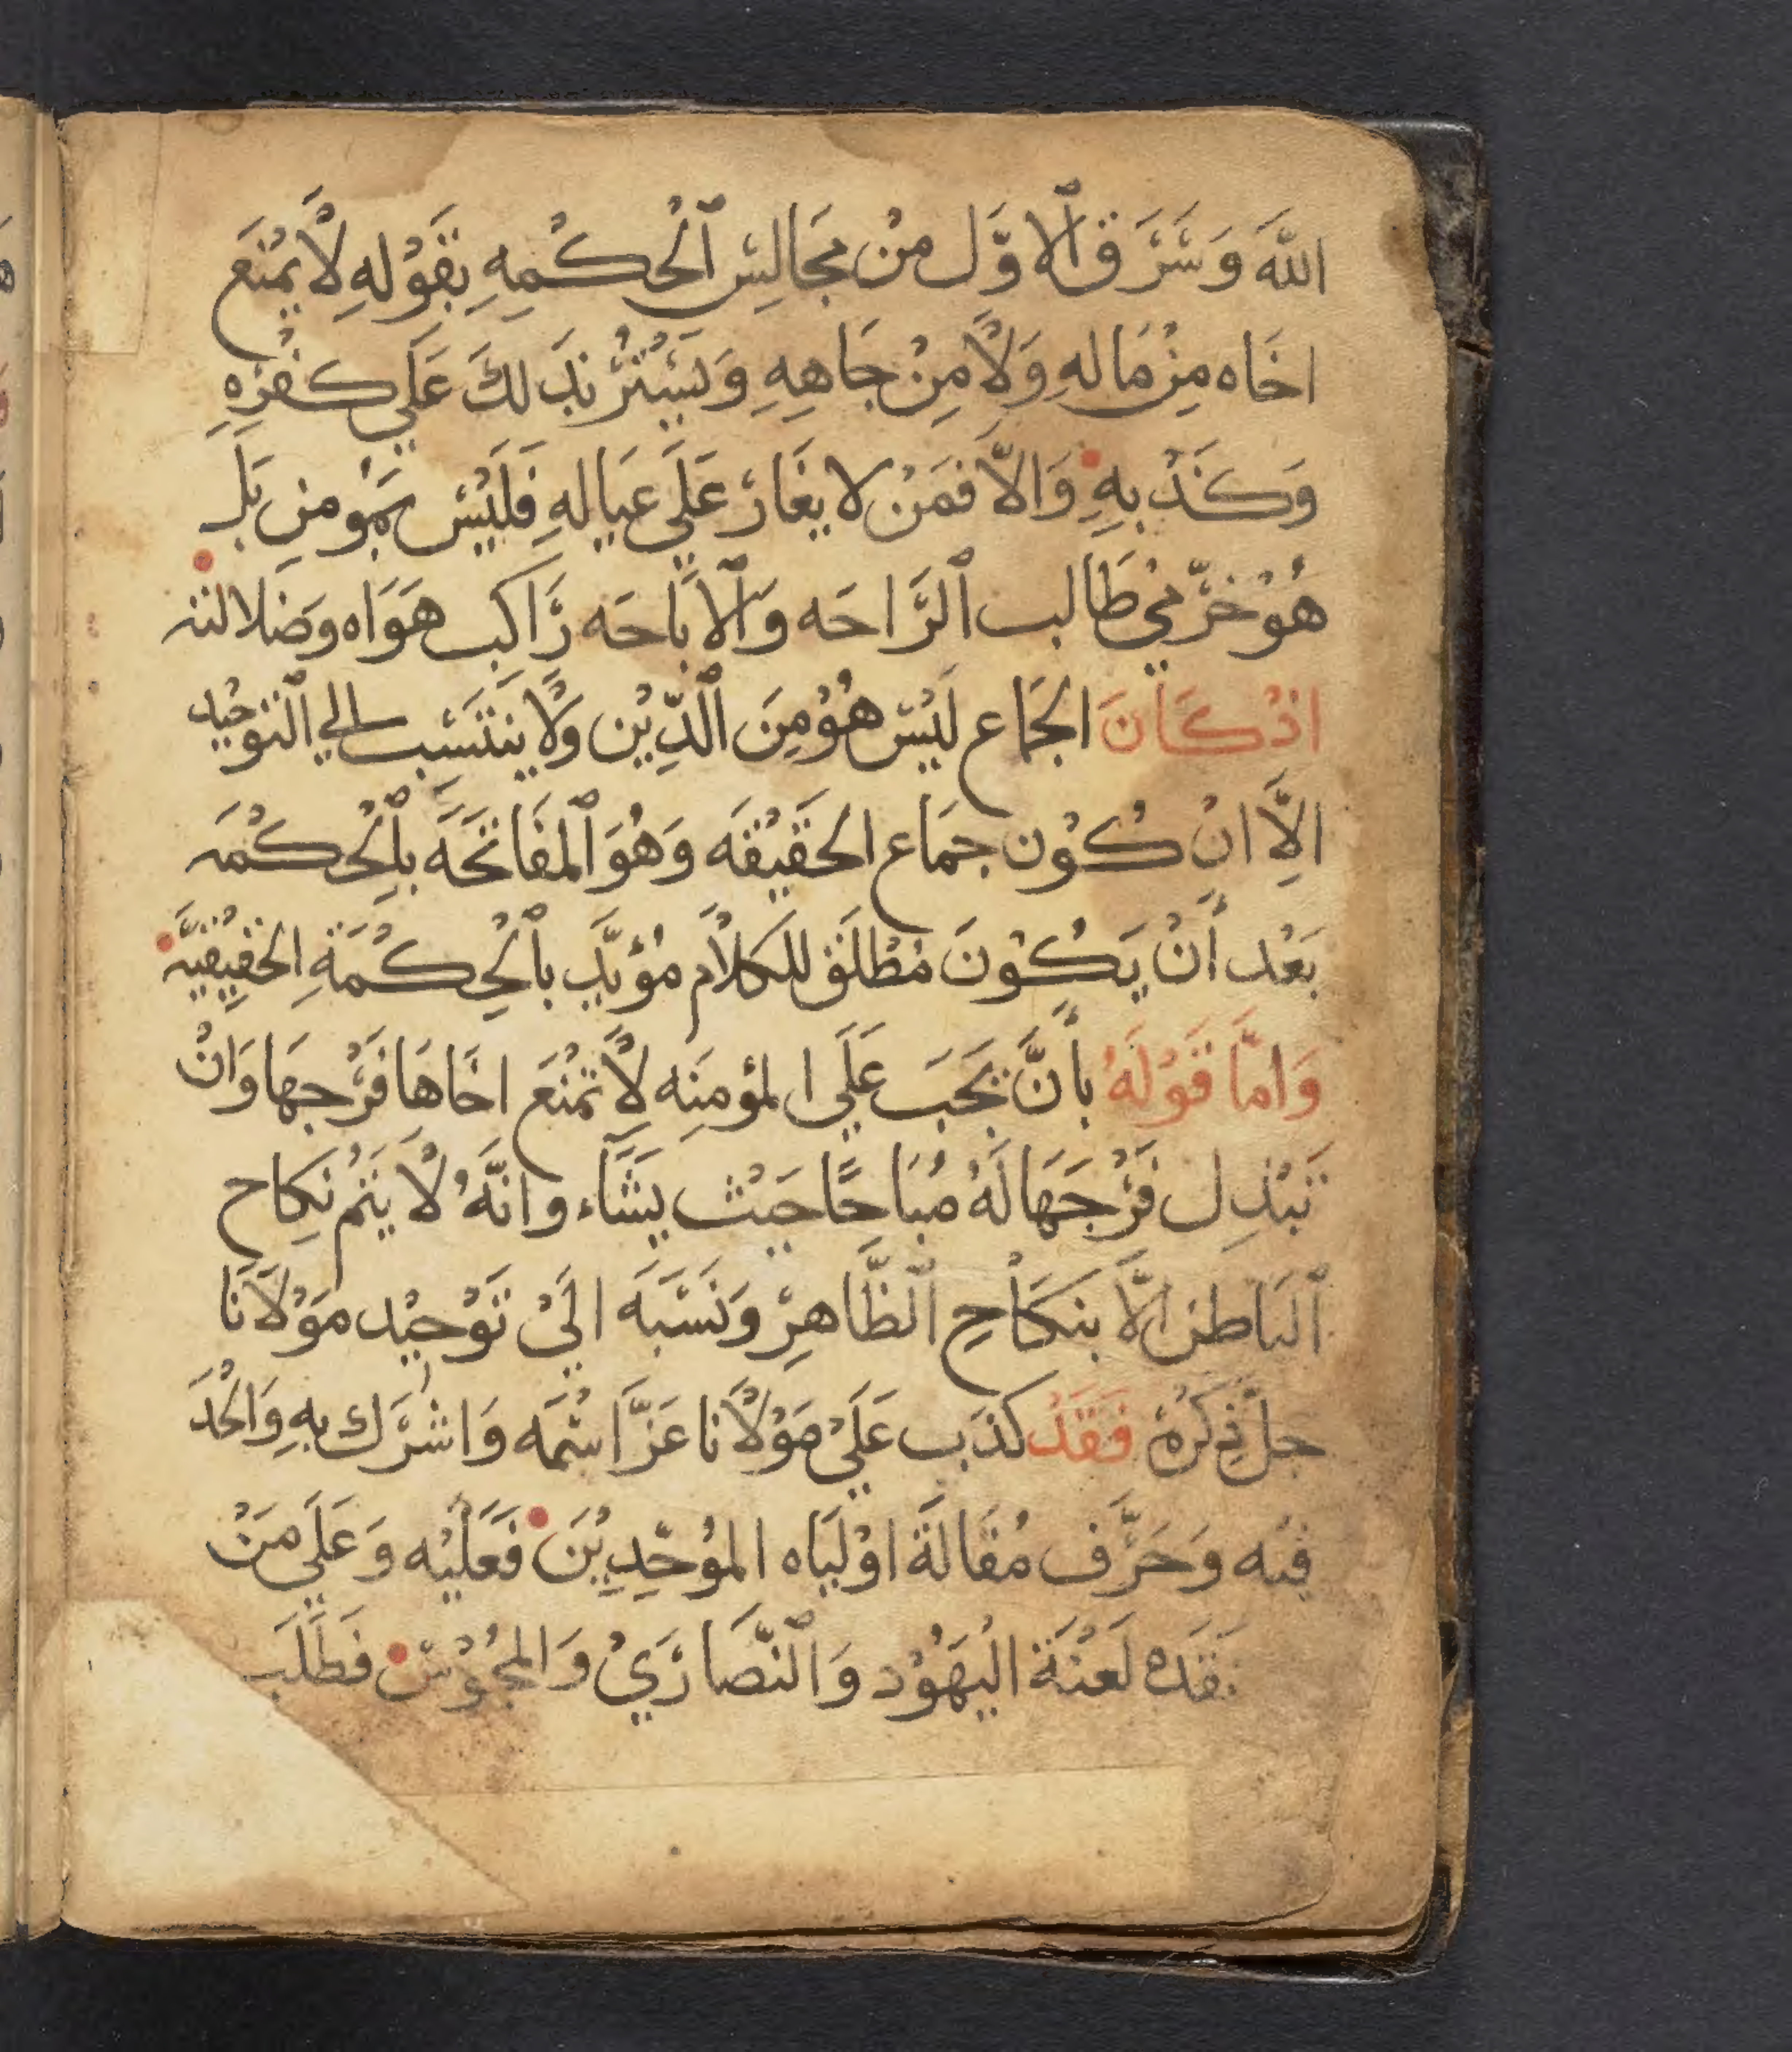 اللهَ وَسَرَق ٱلاوَّل مِنْ مجَالِسِ ٱلحُكْمِهِ بقَوْلِهِ لَّا يمْنَع
اخَاه مِنْ مَالهِ وَلَّا مِنْ جَاهِهِ وَيَسْتُرْ بذَلكَ عَلَي كفْرِهِ
وَكذْبهِ وَالاّ فمَنْ لا يغَارْ عَلَي عيالهِ فَليْسَ بمؤمنِ بَل
هُوْ خرّمي طَالب ٱلرَّاحَه وَٱلابَاحَه رَاكب هَوَاه وضلالته
اذْ كَانَ الجمَاع ليْسَ هُوْ مِنَ ٱلدِّيْن وَلَّا ينتَسب الي ٱلتوحْيد
الِاَّ انْ كُوْن جمَاع الحَقيْقَه وَهُوَ ٱلمفَاتحَه بٱلحْكْمَه
بَعْد أَنْ يَكُوْنَ مُطْلَق للكلَام مُؤيَّد بٱلحِكْمَةِ الحَقِيْقيَّه
وَامَّا قَوْلَهُ بأَنَّ يجَبَ عَلَي المؤمنَه لَّا تمْنَع اخَاهَا فَرْجهَا وَانْ
تبْذِل فَرْجَهَا لَهُ مُبَاحًا حَيْث يَشَّاء وانَّهُ لَّا يَتمْ نكَاح
ٱلبَاطن الَّا بنكَاحِ ٱلظَّاهِرْ وَنَسَبَهَ الَيْ تَوْحيْد مَوْلَانَا
جلَّ ذِكْرُهْ فَقَدْ كذَب عَلَيْ مَوْلَانا عَزَّ اسْمَه وَاشْرَك بهِ وَالحْدَ
فيْه وَحَرَّف مُقَالَةَ اوْليَاه الموُحِّدِيْنَ فعَليْه وَعَلَي مَنْ
لَعْنَة اليْهَوُد وَٱلنَّصَارَيْ وَالمجُوْسْ فطَلَب